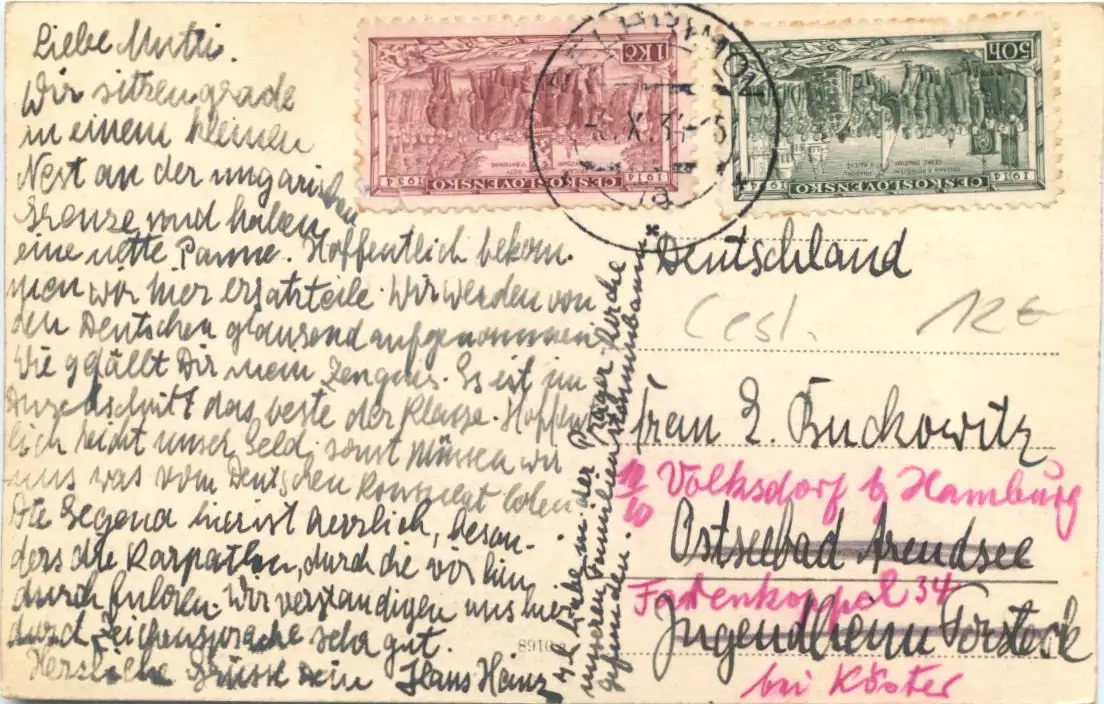 Liebe Mutti.
Wir sitzen grade
in einem kleinen
Nest an der ungarischen
Grenze und haben
eine nette Panne. Hoffentlich bekom-
men wir hier ersatzteile. Wir werden von
den Deutschen glausend aufgenommen.
Wie gefällt Dir mein Zeugnis. Es ist im
Durchschnitt das beste der Klasse. Hoffent
lich reicht unser Geld, sonst müssen wir
uns was vom Deutschen Konsulat holen.
Die Gegend hier ist herrlich, beson-
ders die Karpathen, durch die wir hin
durch fuhren. Wir verständigen uns hier
durch Zeichensprache sehr gut.
Herzliche Grüsse dein Hans Heinz
Ich habe in der Prager Kirche
unseren Familienstammbaum
gefunden.
8910
1 Kč
ČESKOSLOVENSKO
1914 1934
50h
ČESKOSLOVENSKO
1914 1934
X. 34
Deutschland
Česl. 12€
Frau E. Buckowitz
Volksdorf b. Hamburg
Ostseebad Arendsee
Farenkoppel 34
Jugendheim Forsteck
bei Köster